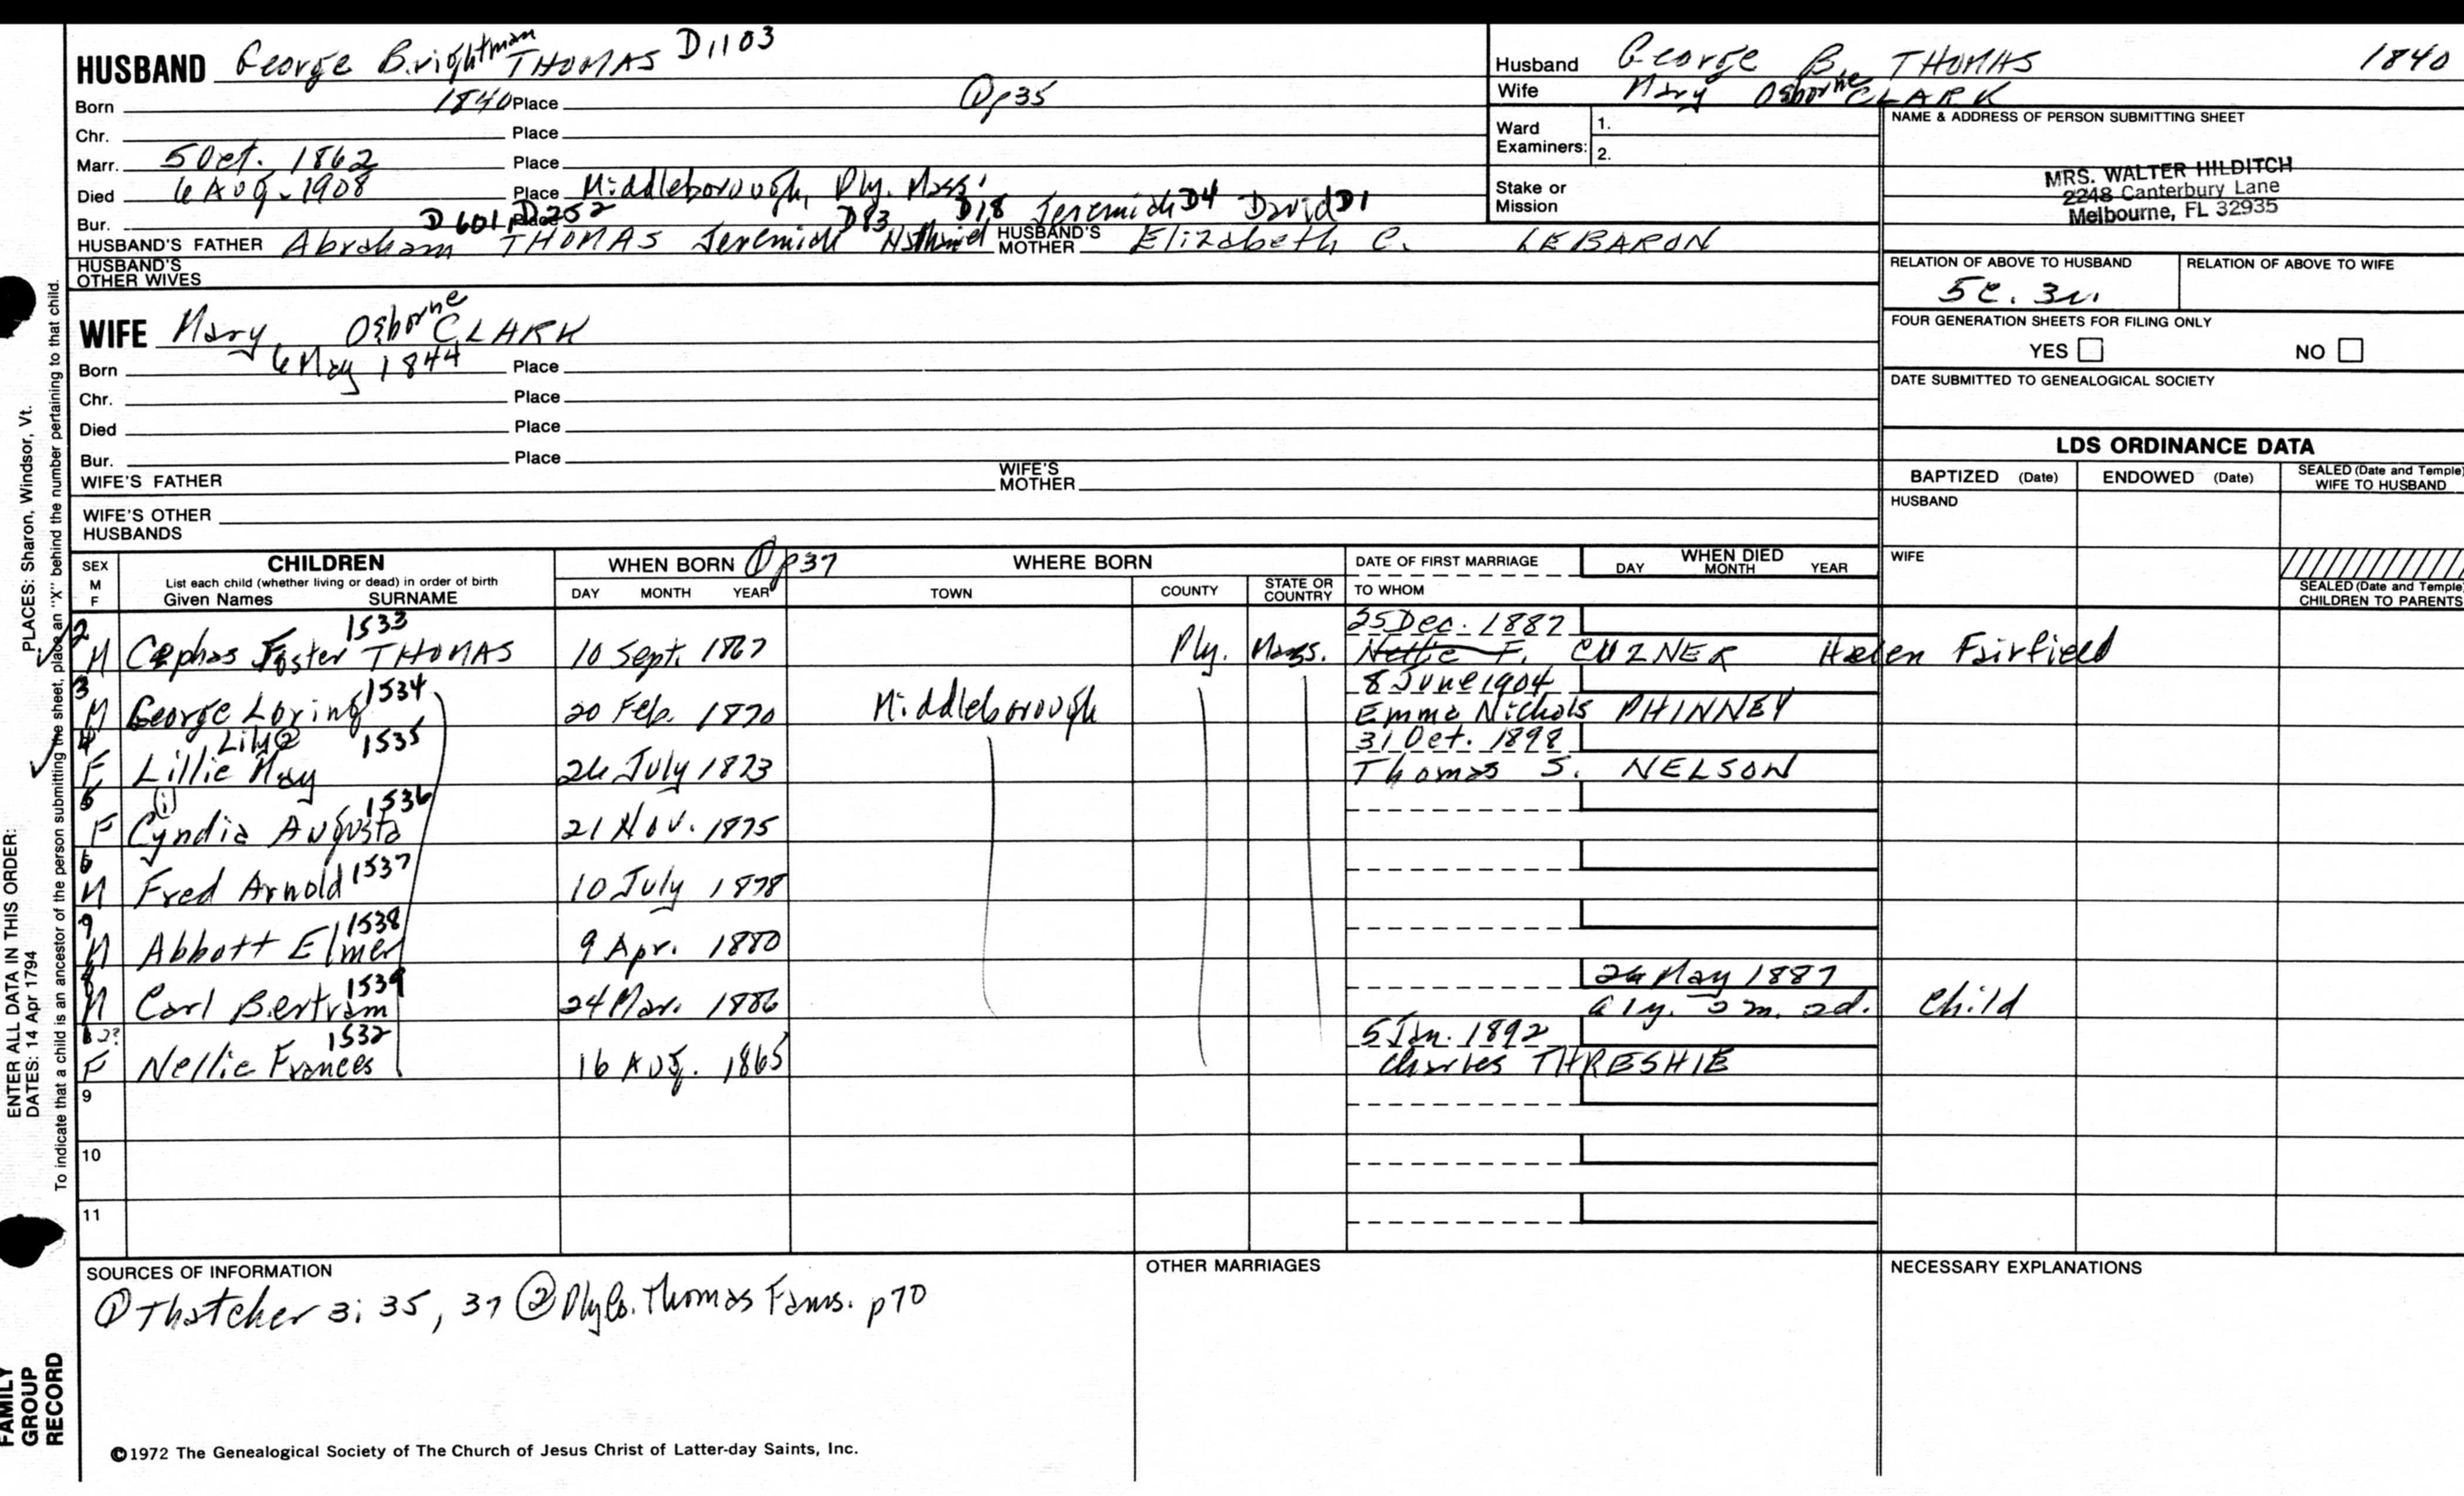 HUSBAND George Brightman THOMAS D1103
Born 1840 Place ① p35
Chr. Place
Marr. 5 Oct. 1862 Place
Died 6 Aug. 1908 Place Middleborough, Ply. Mass.
Bur. Place D601, D252 D83 D18 Jeremiah D4 David D1
HUSBAND'S FATHER Abraham THOMAS Jeremiah Nathaniel HUSBAND'S MOTHER Elizabeth C. LEBARON
HUSBAND'S OTHER WIVES
Husband George B. THOMAS 1840
Wife Mary Osborne CLARK
Ward Examiners: 1.
2.
Stake or Mission
NAME & ADDRESS OF PERSON SUBMITTING SHEET
MRS. WALTER HILDITCH
2248 Canterbury Lane
Melbourne, FL 32935
RELATION OF ABOVE TO HUSBAND RELATION OF ABOVE TO WIFE
5c. 3r.
FOUR GENERATION SHEETS FOR FILING ONLY
YES NO
DATE SUBMITTED TO GENEALOGICAL SOCIETY
WIFE Mary Osborne CLARK
Born 6 May 1844 Place
Chr. Place
Died Place
Bur. Place
WIFE'S FATHER WIFE'S MOTHER
WIFE'S OTHER HUSBANDS
LDS ORDINANCE DATA
BAPTIZED (Date) ENDOWED (Date) SEALED (Date and Temple) WIFE TO HUSBAND
HUSBAND
WIFE
SEALED (Date and Temple) CHILDREN TO PARENTS
SEX M F
CHILDREN
List each child (whether living or dead) in order of birth
Given Names SURNAME
WHEN BORN ① p37
DAY MONTH YEAR
WHERE BORN
TOWN COUNTY STATE OR COUNTRY
DATE OF FIRST MARRIAGE
TO WHOM
WHEN DIED
DAY MONTH YEAR
2 1533 25 Dec. 1887
M Cephas Foster THOMAS 10 Sept. 1867 Ply. Mass. Nettie F. CUZNER Helen Fairfield
3 1534 8 June 1904
M George Loring 20 Feb. 1870 Middleborough Emma Nichols PHINNEY
4 Lily② 1535 31 Oct. 1898
F Lillie May 26 July 1873 Thomas S. NELSON
5 (i) 1536
F Cyndia Augusta 21 Nov. 1875
6 1537
M Fred Arnold 10 July 1878
1538
M Abbott Elmer 9 Apr. 1880
1539 26 May 1887
M Carl Bertram 24 Mar. 1886 a 1y. 2m. 2d. Child
1532 5 Jan. 1892
F Nellie Frances 16 Aug. 1865 Charles THRESHIE
9
10
11
SOURCES OF INFORMATION
① Thatcher 3: 35, 37 ② Ply Co. Thomas Fams. p70
OTHER MARRIAGES
NECESSARY EXPLANATIONS
©1972 The Genealogical Society of The Church of Jesus Christ of Latter-day Saints, Inc.
ENTER ALL DATA IN THIS ORDER:
DATES: 14 Apr 1794 PLACES: Sharon, Windsor, Vt.
To indicate that a child is an ancestor of the person submitting the sheet, place an "X" behind the number pertaining to that child.
FAMILY
GROUP
RECORD